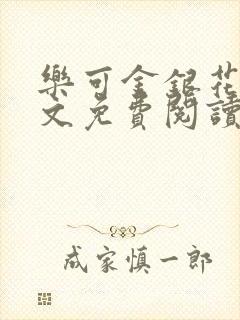 樂可金銀花
文免費閱讀
成家慎一郎